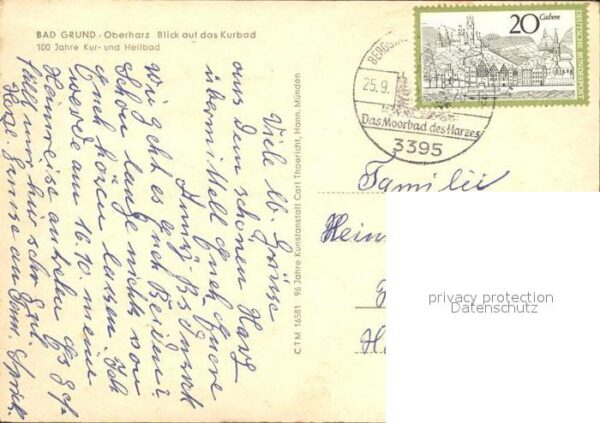 BAD GRUND - Oberharz Blick auf das Kurbad
100 Jahre Kur- und Heilbad
20 Cochem
DEUTSCHE BUNDESPOST
25.9.
Das Moorbad des Harzes
3395
Viele lb. Grüsse
aus dem schönen Harz
übermittelt Euch Eure
Wie geht es Euch Beiden?
Schon lange nichts von
Euch hören lassen. Ich
werde am 16.10. meine
Heimreise antreten. Es gef.
fällt mir hier sehr gut.
Herzl. Grüsse an
C T M 16581 96 Jahre Kunstanstalt Carl Thoericht, Hann. Münden
Familie
Hein
privacy protection
Datenschutz